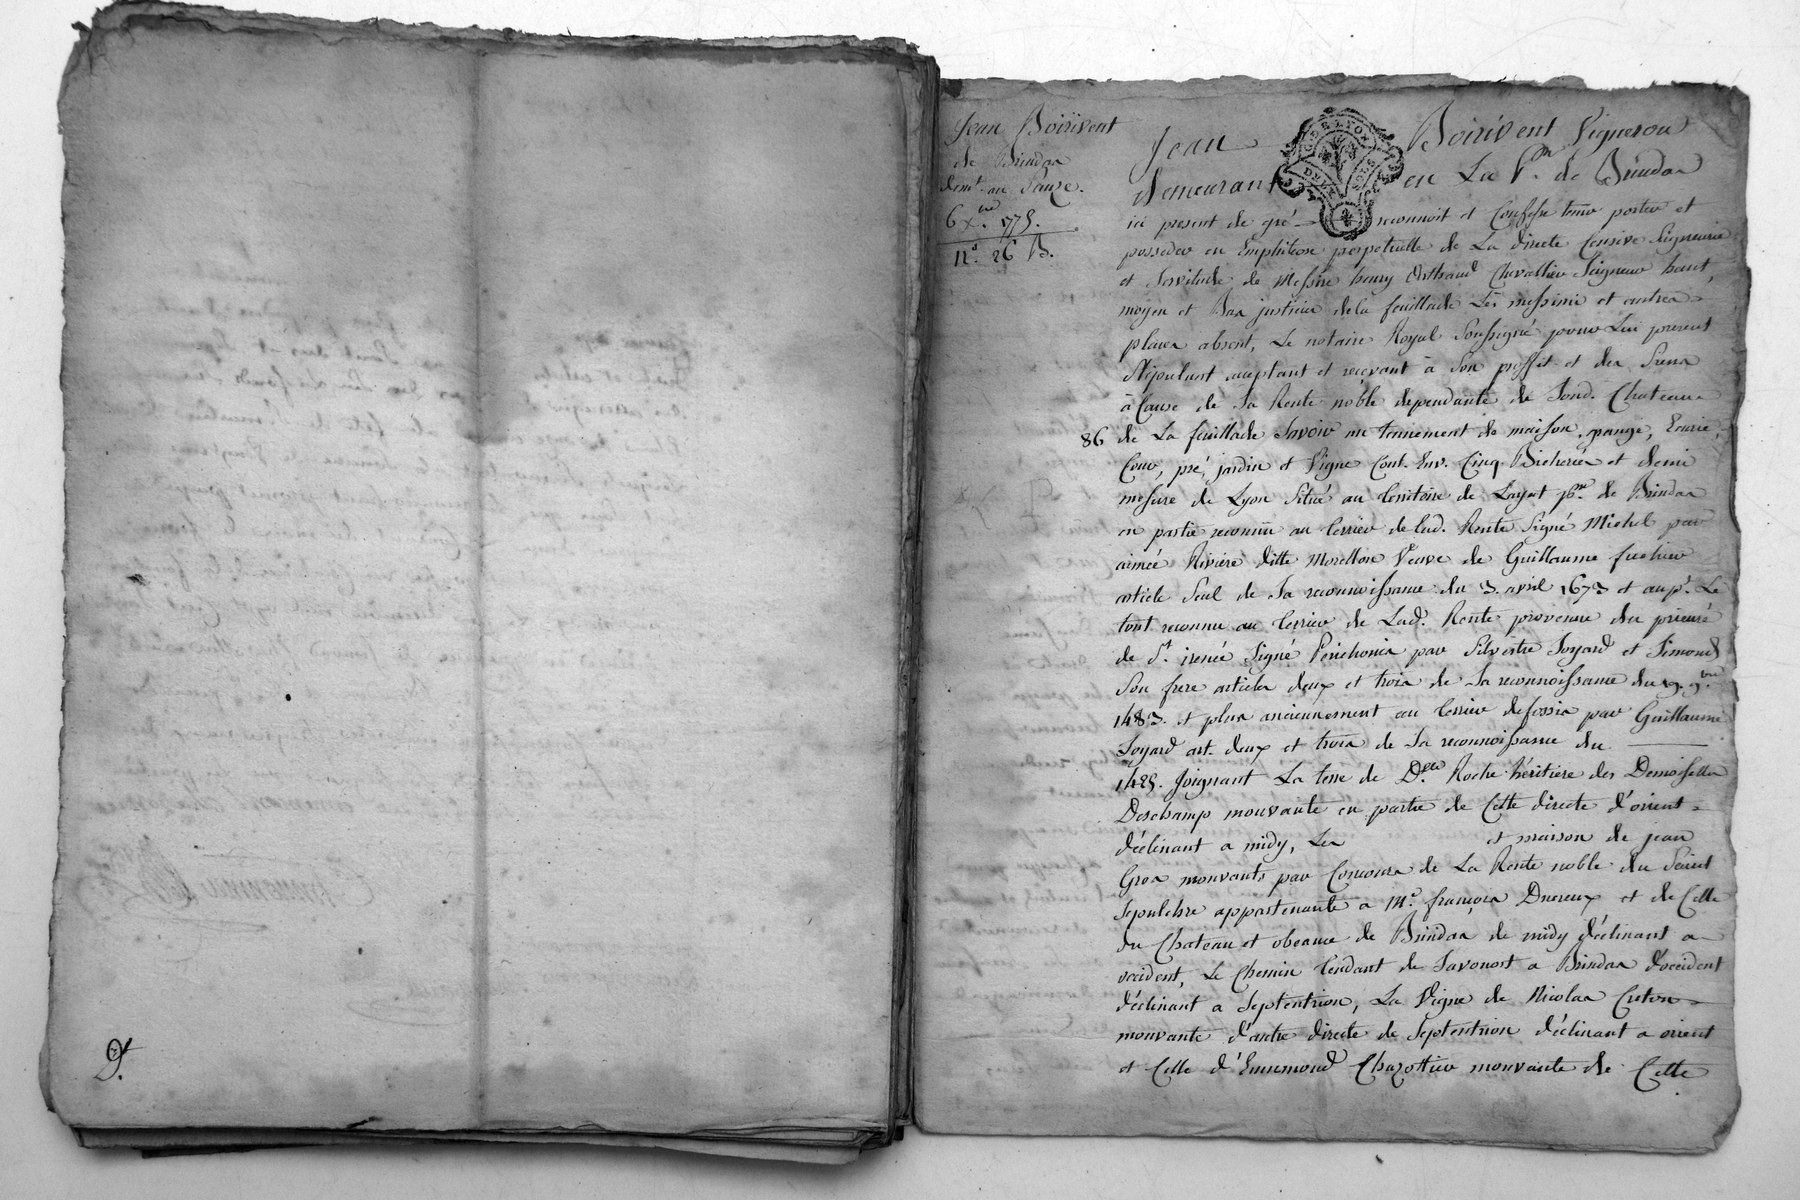 D.t
Jean Boirivent
de Brindas
dem.t au Pause.
6 X.bre 1775.
12.s 26 B.
Jean Boirivent Vigneron
GDE LYON
DEUX SOLS
demeurant en La P.sse de Brindas
ici present de gré reconnoit et Confesse tenir porter et
posseder en Emphiteose perpetuelle de La directe Censive Seigneurie
et Servitude de Messire henry Chevallier Seigneur haut,
moyen et Bas justicier dela feuillade Les messimi et autres
places absent, Le notaire Royal Soussigné pour Lui present
Stipulant acceptant et recevant à Son proffit et des Siens
à Cause de Sa Rente noble dependante de Sond. Chateau
86 de La feuillade Savoir un tennement de maison, grange, Ecurie,
Cour, pré, jardin et Vigne Cont. Env. Cinq Bicherées et demi
mesure de Lyon Situé au territoire de Layat p.sse de Brindas
en partie reconnu au terrier de lad. Rente Signé Michel par
aimée Riviere ditte Morellon Veuve de Guillaume
article Seul de Sa reconnoissance du 3. avril 1673 et aup.t Le
tout reconnu au terrier de Lad. Rente provenue du prieuré
de S.t irenée Signé Perichonis par Silvestre Joyard et Simond
Son frere articles deux et trois de Sa reconnoissance du 9. 9.bre
1483. et plus anciennement au terrier defossis par Guillaume
Joyard art. deux et trois de Sa reconnoissance du
1425. Joignant La terre de D.lle Roche héritiere des Demoiselles
Deschamp mouvante en partie de Cette directe d'orient
déclinant a midy, Les et maison de jean
Gros mouvants par Concours de La Rente noble du Saint
Sepulchre appartenante a M.e françois Ducreux et de Celle
du Chateau et obeance de Brindas de midy déclinant a
occident, Le Chemin tendant de Savonost a Brindas d'occident
déclinant a Septentrion, La Vigne de Nicolas Creton
mouvante d'autre directe de Septentrion déclinant a orient
et Celle d'Ennemond Chazottier mouvante de Cette